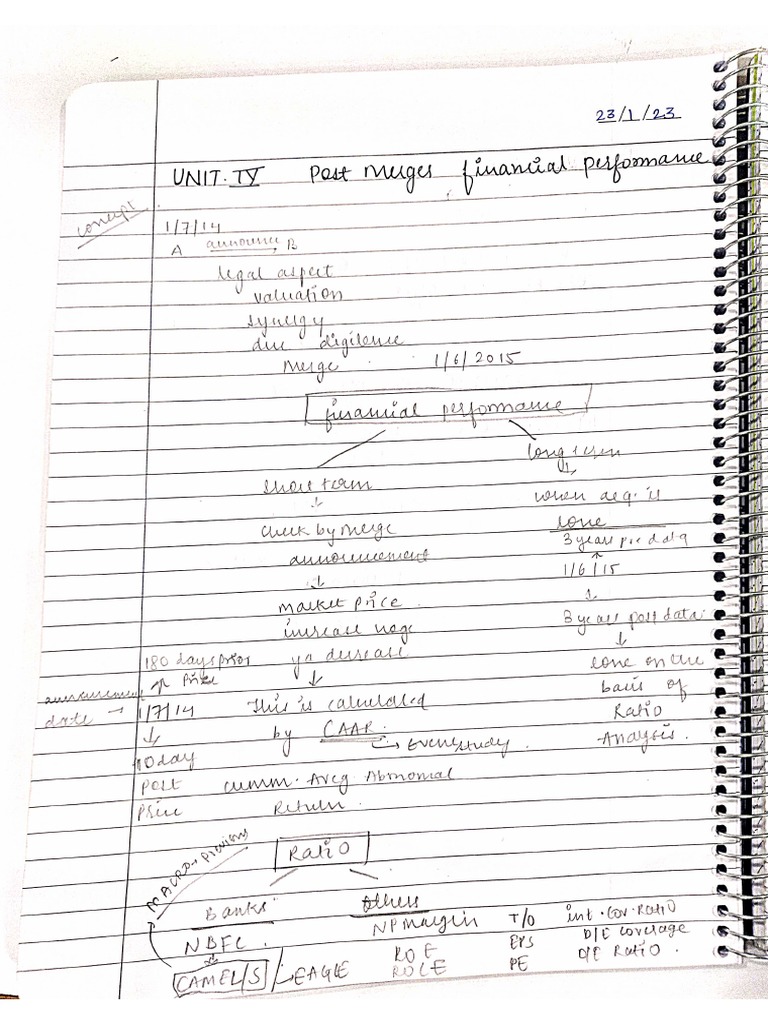 23/1/23
UNIT. IV Post Merger financial performance
concept
1/7/14
A announce B
legal aspect
valuation
synergy
due digilence
Merge 1/6/2015
financial performance
short term
↓
check by merge
announcement
↓
market price
increase hoga
ya decrease
↓
This is calculated
by CAAR.
↳ Event study.
cumm. Aveg Abnormal
Return.
long term
↓
when acq. is
done
3 years pre data
↑
1/6/15
↓
3 years post data
↓
done on the
basis of
Ratio
Analysis.
180 days prior
↑ Price
announcement
date → 1/7/14
↓
10 day
post
price
Ratio
MACRO-
Banks
NBFC.
↓
CAMEL/S / ↳ EAGLE
Others
NP Margin T/O int. Cov. Ratio
ROE EPS D/E Coverage
ROCE PE D/E Ratio.